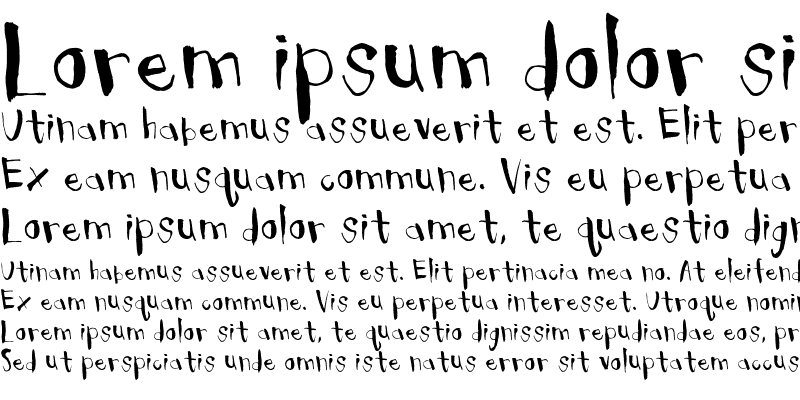 Lorem ipsum dolor si
Utinam habemus assueverit et est. Elit per
Ex eam nusquam commune. Vis eu perpetua
Lorem ipsum dolor sit amet, te quaestio dign
Utinam habemus assueverit et est. Elit pertinacia mea no. At eleifend
Ex eam nusquam commune. Vis eu perpetua interesset. Utroque nomin
Lorem ipsum dolor sit amet, te quaestio dignissim repudiandae eos, pr
Sed ut perspiciatis unde omnis iste natus error sit voluptatem accus